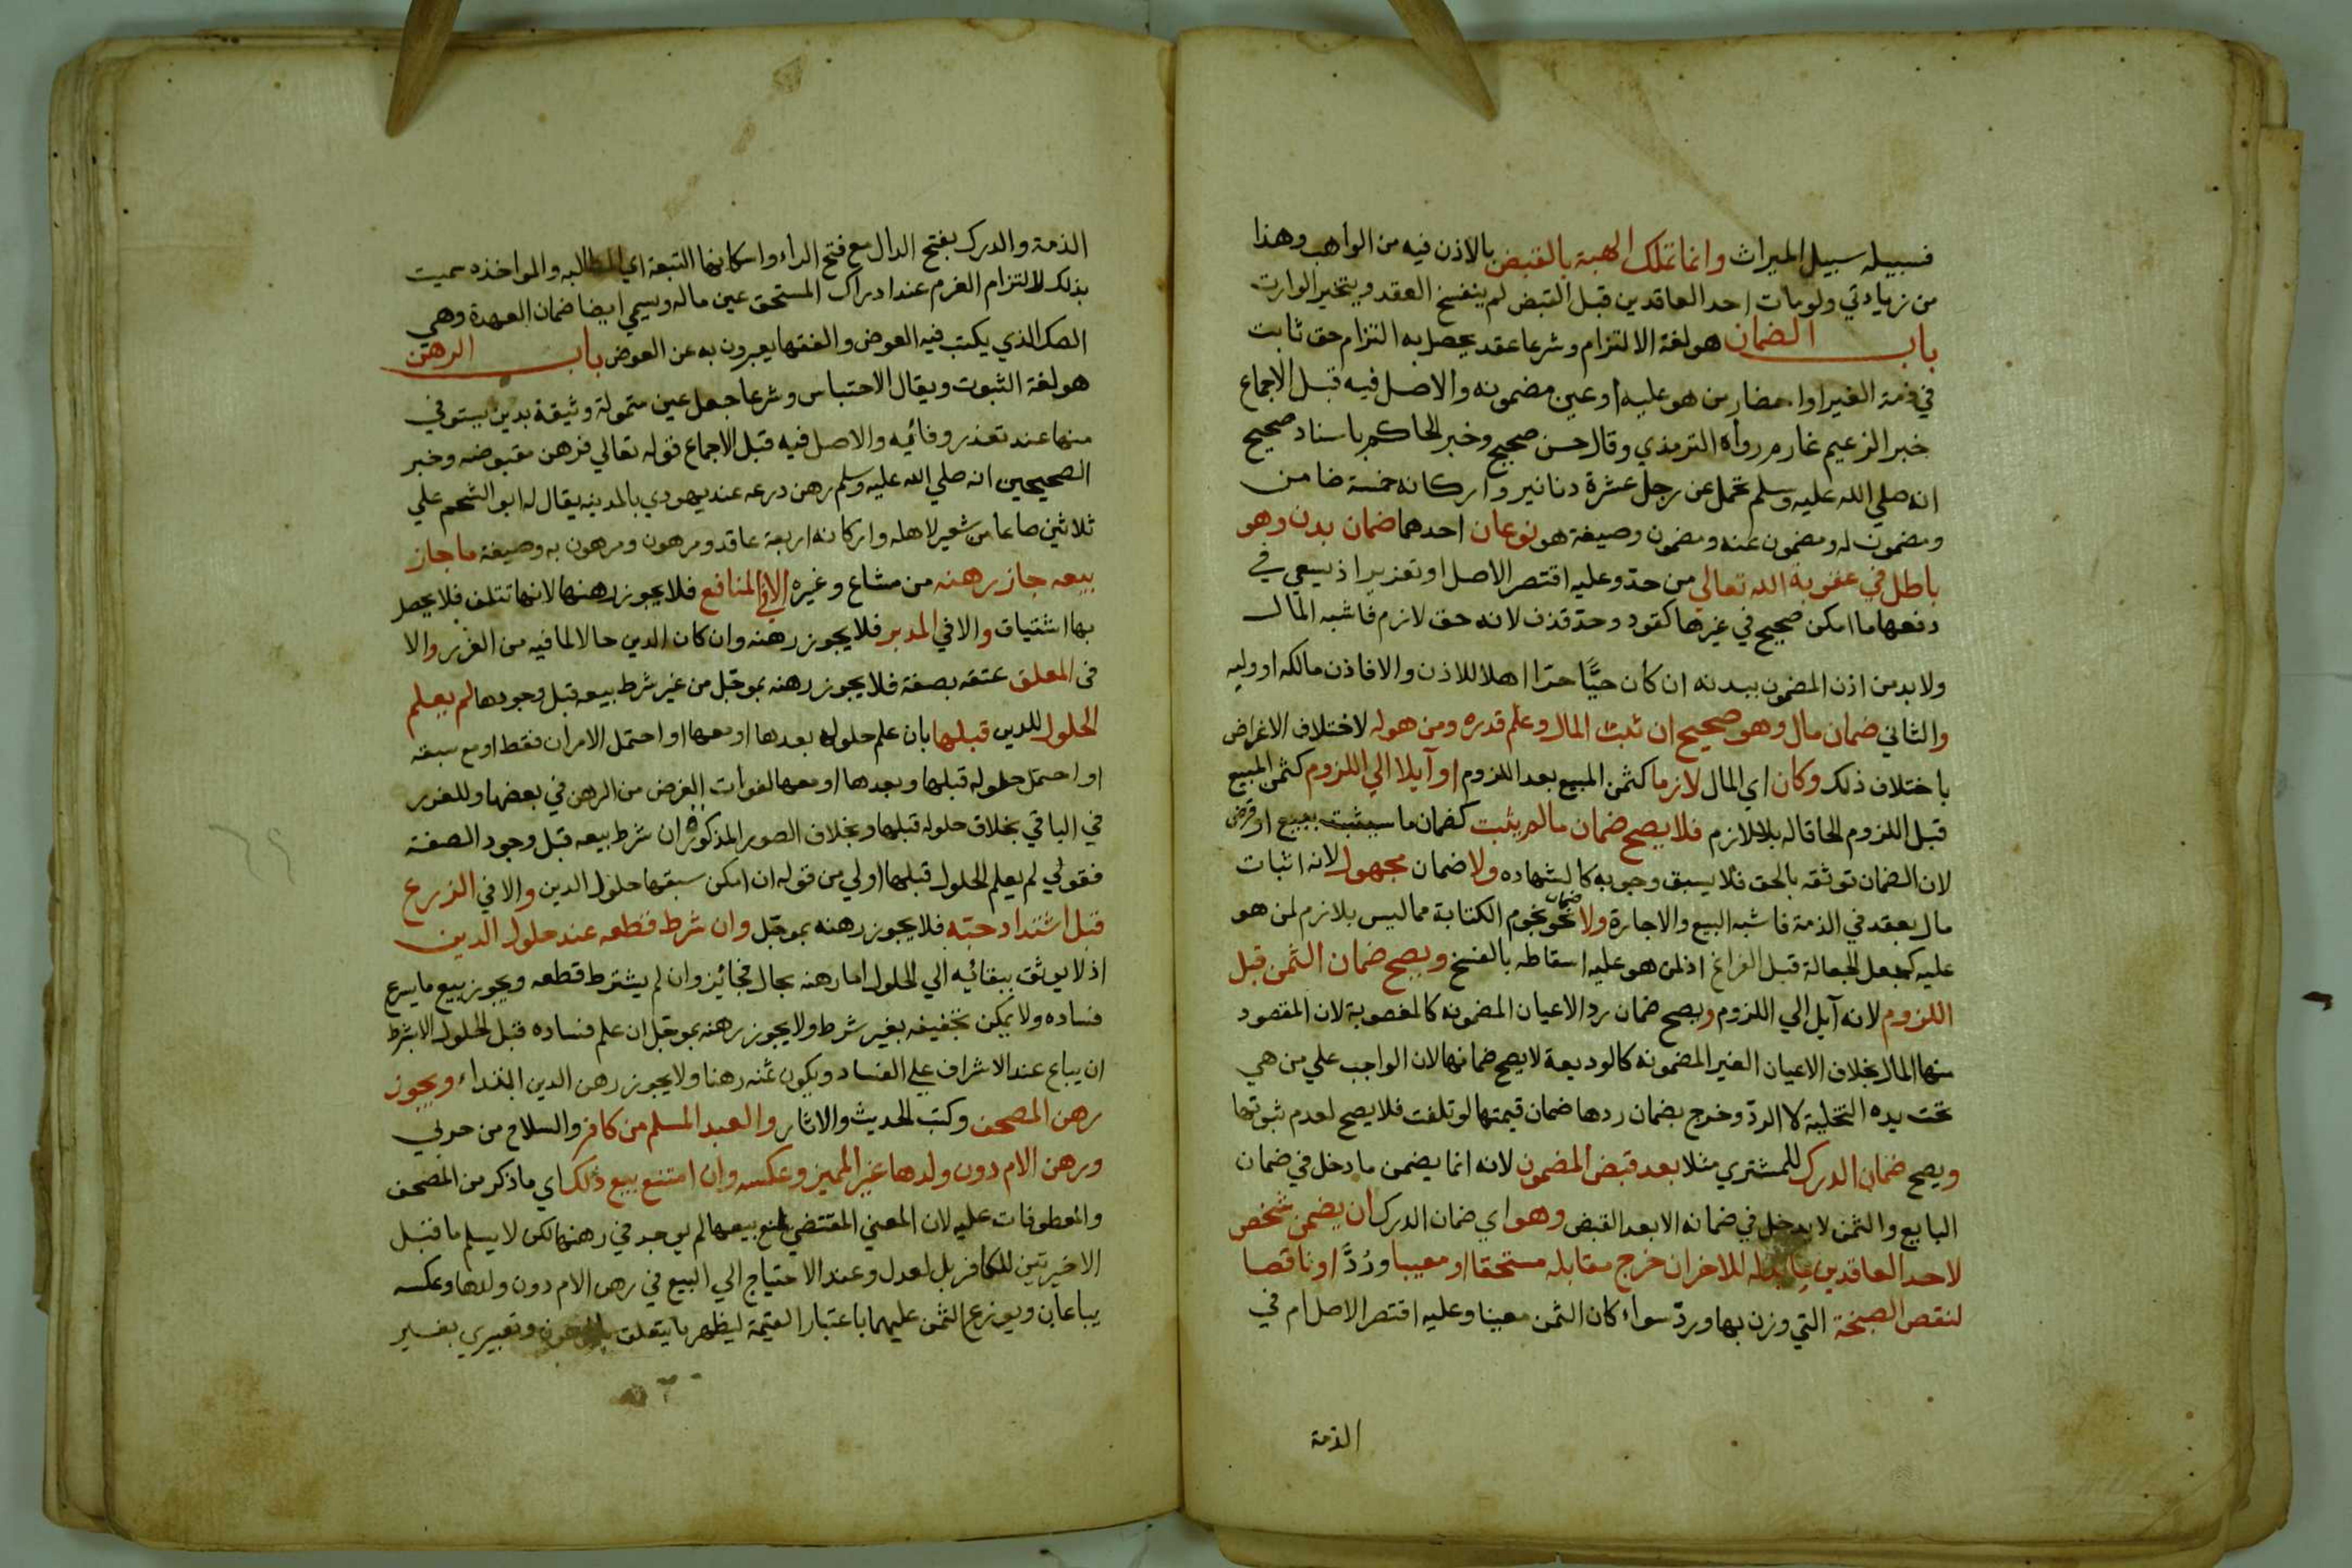 فسبيله سبيل الميراث وانما تملك الهبة بالقبض بالاذن فيه من الواهب وهذا
من زيادتي ولو مات احد العاقدين قبل القبض لم ينفسخ العقد ويتخير الوارث
باب الضمان هو لغة الالتزام وشرعا عقد يحصل به التزام حق ثابت
في ذمة الغير او احضار من هو عليه او عين مضمونه والاصل فيه قبل الاجماع
خبر الزعيم غارم رواه الترمذي وقال حسن صحيح وخبر الحاكم باسناد صحيح
انه صلي الله عليه وسلم تحمل عن رجل عشرة دنانير واركانه خمسة ضامن
ومضمون له ومضمون عنه ومضمون وصيغة هو نوعان احدهما ضمان بدن وهو
باطل في عقوبة الله تعالي من حد وعليه اقتصر الاصل او تعزير اذ يسعي في
دفعها ما امكن صحيح في غيرها كقود وحد قذف لانه حق لازم فاشبه المال
ولا بد من اذن المضمون ببدنه ان كان حيًّا حرا اهلا للاذن والا فاذن مالكه او وليه
والثاني ضمان مال وهو صحيح ان ثبت المال وعلم قدره ومن هو له لاختلاف الاغراض
باختلاف ذلك وكان اي المال لازما كثمن المبيع بعد اللزوم او آيلا الي اللزوم كثمن المبيع
قبل اللزوم الحاقا له باللازم فلا يصح ضمان ما لم يثبت كضمان ما سيثبت ببيع او قرض
لان الضمان توثقه بالحق فلا يسبق وجوبه كالشهاده ولا ضمان مجهول لانه اثبات
مال بعقد في الذمة فاشبه البيع والاجارة ولا ضمان نحو نجوم الكتابة مما ليس بلازم لمن هو
عليه كجعل الجعالة قبل الفراغ اذ لمن هو عليه اسقاطه بالفسخ ويصح ضمان الثمن قبل
اللزوم لانه آيل الي اللزوم ويصح ضمان رد الاعيان المضمونه كالمغصوبة لان المقصود
منها المال بخلاف الاعيان الغير المضمونه كالوديعة لا يصح ضمانها لان الواجب علي من هي
تحت يده التخلية لا الرد وخرج بضمان ردها ضمان قيمتها لو تلفت فلا يصح لعدم ثبوتها
ويصح ضمان الدرك للمشتري مثلا بعد قبض المضمون لانه انما يضمن ما دخل في ضمان
البايع والثمن لا يدخل في ضمانه الا بعد القبض وهو اي ضمان الدرك ان يضمن شخص
لاحد العاقدين ما بذله للاخر ان خرج مقابله مستحقا او معيبا ورُدَّ او ناقصا
لنقص الصنجة التي وزن بها ورد سواء كان الثمن معينا وعليه اقتصر الاصل ام في
الذمة
الذمة والدرك بفتح الدال مع فتح الراء واسكانها التبعة اي المطالبه والمواخذه سميت
بذلك لالتزام الغرم عند ادراك المستحق عين ماله ويسمي ايضا ضمان العهدة وهي
الصك الذي يكتب فيه العوض والفقها يعبرون به عن العوض باب الرهن
هو لغة الثبوت ويقال الاحتباس وشرعا جعل عين متمولة وثيقة بدين يستوفي
منها عند تعذر وفائيه والاصل فيه قبل الاجماع قوله تعالي فرهن مقبوضه وخبر
الصحيحين انه صلي الله عليه وسلم رهن درعه عند يهودي بالمدينه يقال له ابو الشحم علي
ثلاثين صاعا من شعير لاهله واركانه اربعة عاقد ومرهون ومرهون به وصيغة ما جاز
بيعه جاز رهنه من مشاع وغيره الا في المنافع فلا يجوز رهنها لانها تتلف فلا يحصل
بها استيثاق والا في المدبر فلا يجوز رهنه وان كان الدين حالا لما فيه من الغرر والا
في المعلق عتقه بصفة فلا يجوز رهنه بموجل من غير شرط بيعه قبل وجودها لم يعلم
الحلول للدين قبلها بان علم حلوله بعدها او معها او احتمل الامران فقط او مع سبقه
او احتمل حلوله قبلها وبعدها او معها لفوات الغرض من الرهن في بعضها وللغرر
في الباقي بخلاف حلوله قبلها وبخلاف الصور المذكورة ان شرط بيعه قبل وجود الصفة
فقولي لم يعلم الحلول قبلها اولي من قوله ان امكن سبقها حلول الدين والا في الزرع
قبل اشتداد حبه فلا يجوز رهنه بموجل وان شرط قطعه عند حلول الدين
اذ لا يوثق ببقائيه الي الحلول اما رهنه بحال فجائيز وان لم يشترط قطعه ويجوز بيع ما يسرع
فساده ولا يمكن تجفيفه بغير شرط ولا يجوز رهنه بموجل ان علم فساده قبل الحلول الا بشرط
ان يباع عند الاشراف علي الفساد ويكون ثمنه رهنا ولا يجوز رهن الدين ابتداء ويجوز
رهن المصحف وكتب الحديث والاثار والعبد المسلم من كافر والسلاح من حربي
ورهن الام دون ولدها غير المميز وعكسه وان امتنع بيع ذلك اي ما ذكر من المصحف
والمعطوفات عليه لان المعني المقتضي لمنع بيعها لم يوجد في رهنها لكن لا يسلم ما قبل
الاخيرتين للكافر بل لعدل وعند الاحتياج الي البيع في رهن الام دون ولدها وعكسه
يباعان ويوزع الثمن عليهما باعتبار القيمة ليظهر ما يتعلق بالمرهون وتعبيري بغير